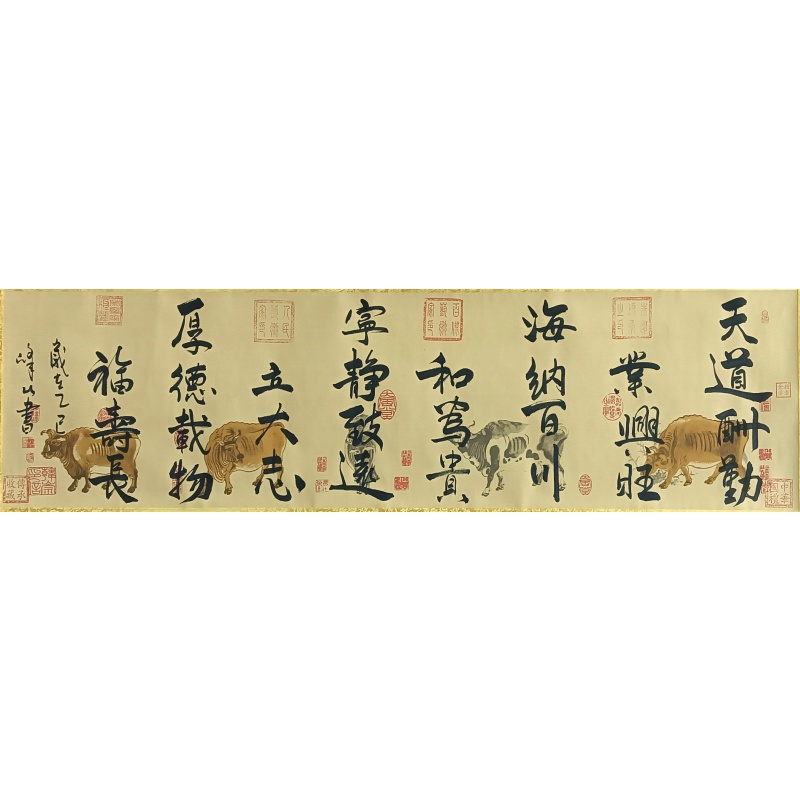 天道酬勤
業興旺
海纳百川
和为貴
寧静致遠
立大志
厚德載物
福壽長
歲在乙巳
峰山書